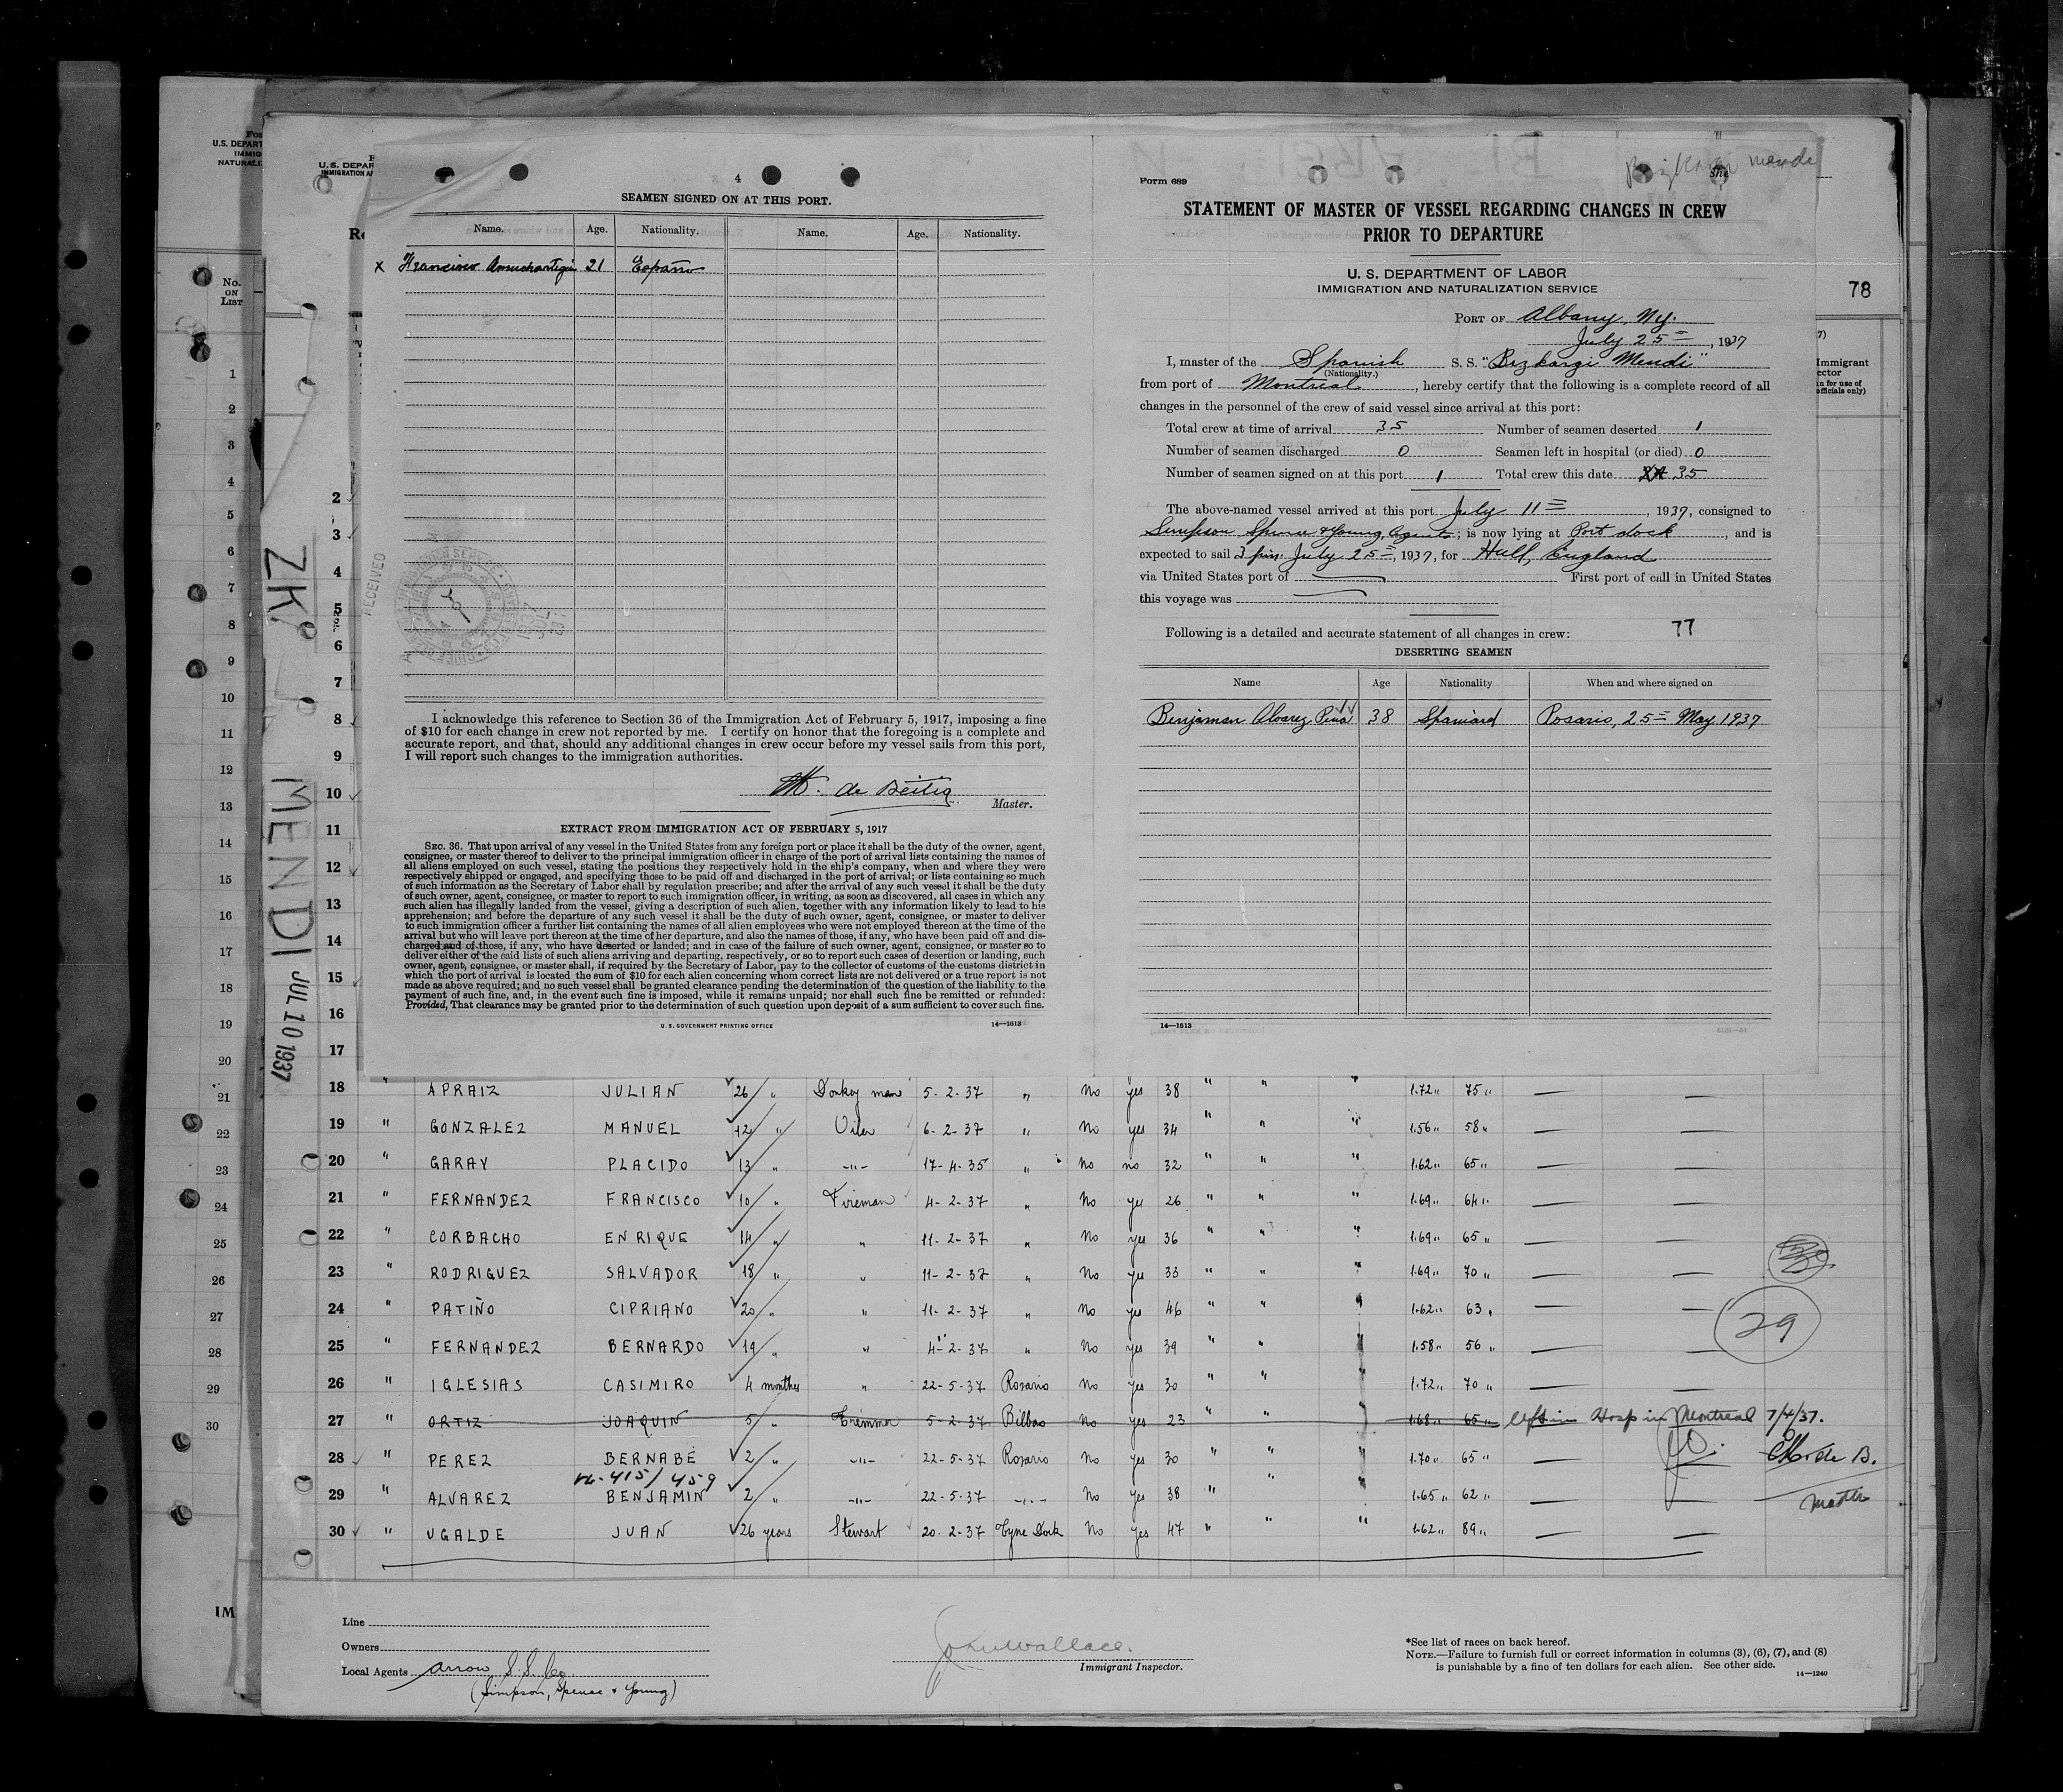 4
SEAMEN SIGNED ON AT THIS PORT.
Name. Age. Nationality. Name. Age. Nationality.
x Francisco 21 Español
I acknowledge this reference to Section 36 of the Immigration Act of February 5, 1917, imposing a fine
of $10 for each change in crew not reported by me. I certify on honor that the foregoing is a complete and
accurate report, and that, should any additional changes in crew occur before my vessel sails from this port,
I will report such changes to the immigration authorities.
M. de Beitia
Master.
EXTRACT FROM IMMIGRATION ACT OF FEBRUARY 5, 1917
SEC. 36. That upon arrival of any vessel in the United States from any foreign port or place it shall be the duty of the owner, agent,
consignee, or master thereof to deliver to the principal immigration officer in charge of the port of arrival lists containing the names of
all aliens employed on such vessel, stating the positions they respectively hold in the ship's company, when and where they were
respectively shipped or engaged, and specifying those to be paid off and discharged in the port of arrival; or lists containing so much
of such information as the Secretary of Labor shall by regulation prescribe; and after the arrival of any such vessel it shall be the duty
of such owner, agent, consignee, or master to report to such immigration officer, in writing, as soon as discovered, all cases in which any
such alien has illegally landed from the vessel, giving a description of such alien, together with any information likely to lead to his
apprehension; and before the departure of any such vessel it shall be the duty of such owner, agent, consignee, or master to deliver
to such immigration officer a further list containing the names of all alien employees who were not employed thereon at the time of the
arrival but who will leave port thereon at the time of her departure, and also the names of those, if any, who have been paid off and dis-
charged and of those, if any, who have deserted or landed; and in case of the failure of such owner, agent, consignee, or master so to
deliver either of the said lists of such aliens arriving and departing, respectively, or so to report such cases of desertion or landing, such
owner, agent, consignee, or master shall, if required by the Secretary of Labor, pay to the collector of customs of the customs district in
which the port of arrival is located the sum of $10 for each alien concerning whom correct lists are not delivered or a true report is not
made as above required; and no such vessel shall be granted clearance pending the determination of the question of the liability to the
payment of such fine, and, in the event such fine is imposed, while it remains unpaid; nor shall such fine be remitted or refunded:
Provided, That clearance may be granted prior to the determination of such question upon deposit of a sum sufficient to cover such fine.
U.S. GOVERNMENT PRINTING OFFICE 14—1613
Form 689
STATEMENT OF MASTER OF VESSEL REGARDING CHANGES IN CREW
PRIOR TO DEPARTURE
U. S. DEPARTMENT OF LABOR
IMMIGRATION AND NATURALIZATION SERVICE
78
PORT OF Albany, N.Y.
July 25=, 1937
I, master of the Spanish S. S. "Bizkargi Mendi"
(Nationality.)
from port of Montreal, hereby certify that the following is a complete record of all
changes in the personnel of the crew of said vessel since arrival at this port:
Total crew at time of arrival 35 Number of seamen deserted 1
Number of seamen discharged 0 Seamen left in hospital (or died) 0
Number of seamen signed on at this port 1 Total crew this date 35
The above-named vessel arrived at this port July 11=, 1937, consigned to
Simpson Spence & Young, Agents; is now lying at Port dock, and is
expected to sail 3 pm. July 25=, 1937, for Hull, England
via United States port of First port of call in United States
this voyage was
77
Following is a detailed and accurate statement of all changes in crew:
DESERTING SEAMEN
Name Age Nationality When and where signed on
Benjaman Alvarez Pena 38 Spaniard Rosario, 25= May 1937
14—1613
ZK
MENDI JUL 10 1937
RECEIVED
No. ON LIST
1
2
3
4
5
6
7
8
9
10
11
12
13
14
15
16
17
18
19
20
21
22
23
24
25
26
27
28
29
30
2
3
4
5
6
7
8
9
10
11
12
13
14
15
16
17
18 " APRAIZ JULIAN 26 " Donkey man 5-2-37 " No yes 38 " " " 1.72 " 75 " — —
19 " GONZALEZ MANUEL 12 " Oiler 6-2-37 " No yes 34 " " " 1.56 " 58 " — —
20 " GARAY PLACIDO 13 " -"- 17-4-35 " No no 32 " " " 1.62 " 65 " — —
21 " FERNANDEZ FRANCISCO 10 " Fireman 4-2-37 " No yes 26 " " " 1.69 " 64 " — —
22 " CORBACHO ENRIQUE 14 " " 11-2-37 " No yes 36 " " " 1.69 " 65 " — —
23 " RODRIGUEZ SALVADOR 18 " " 11-2-37 " No yes 33 " " " 1.69 " 70 " — —
24 " PATIÑO CIPRIANO 20 " " 11-2-37 " No yes 46 " " " 1.62 " 63 " — —
29
25 " FERNANDEZ BERNARDO 19 " " 4-2-37 " No yes 39 " " " 1.58 " 56 " — —
26 " IGLESIAS CASIMIRO 4 monthes " 22-5-37 Rosario No yes 30 " " " 1.72 " 70 " — —
27 " ORTIZ JOAQUIN 5 " Trimmer 5-2-37 Bilbao No yes 23 " " 1.68 " 65 " left in Hosp in Montreal 7/4/37.
28 " PEREZ BERNABE 2 " -"- 22-5-37 Rosario No yes 30 " " " 1.70 " 65 " — — M. de B.
415/459
29 " ALVAREZ BENJAMIN 2 " -"- 22-5-37 -"- No yes 38 " " " 1.65 " 62 " — — Master
30 " UGALDE JUAN 26 years Stewart 20-2-37 Tyne Dock No yes 47 " " " 1.62 " 89 " — —
Line
Owners
Local Agents Arrow S.S. Co.
(Simpson, Spence & Young)
John Wallace.
Immigrant Inspector.
*See list of races on back hereof.
NOTE.—Failure to furnish full or correct information in columns (3), (6), (7), and (8)
is punishable by a fine of ten dollars for each alien. See other side.
14—1240